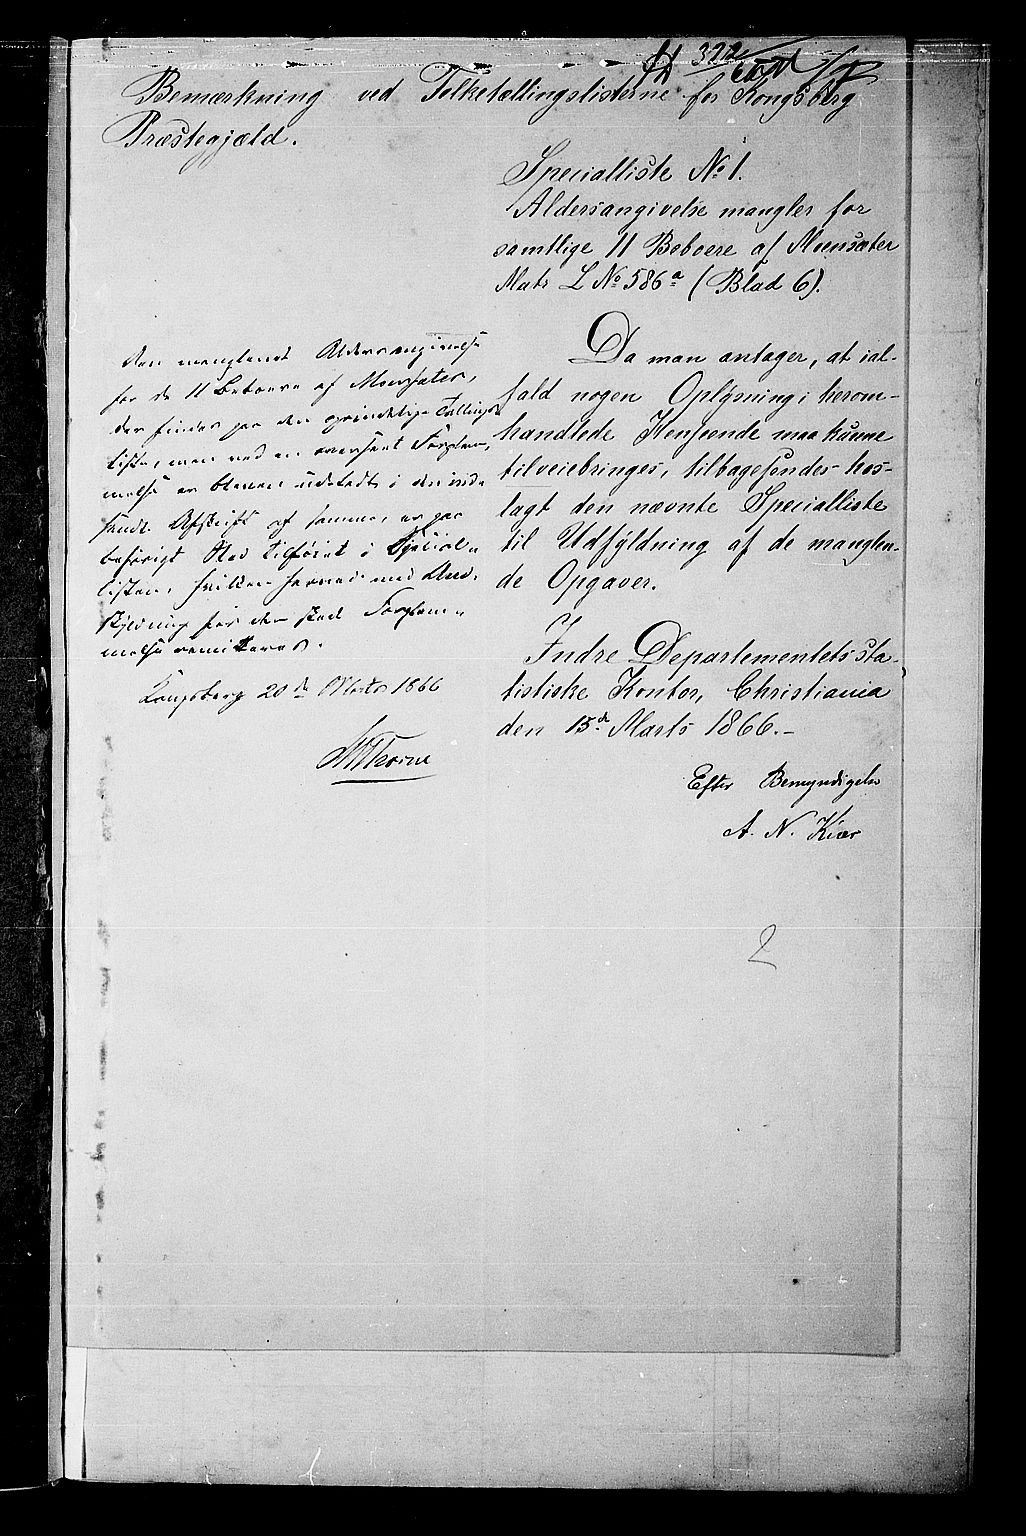 322
Bemærkning ved Folketællingslisterne for Kongsberg
Præstegjæld.
Specialliste No 1.
Aldersangivelse mangler for
samtlige 11 Beboere af Moensæter
Matr L No 586a (Blad 6).
Da man antager, at ial-
fald nogen Oplysning i herom-
handlede Henseende maa kunne
tilveiebringes, tilbagesendes hos-
lagt den nævnte Specialliste
til Udfyldning af de manglen-
de Opgaver.
Indre Departementets sta-
tistiske Kontor, Christiania
den 15de Marts 1866.-
Efter Bemyndigelse
A. N. Kiær
Den manglende Aldersangivelse
for de 11 Beboere af Moensæter,
der findes paa den oprindelige Tællings
liste, men ved en overseet Forglem-
melse er bleven udeladt i den ind-
sendte Afskrift af samme, er paa
behørigt Sted tilføiet i Special-
listen, hvilken hermed med Und-
skyldning for den skede Forglem-
melse remitteres.
Kongsberg 20de Marts 1866
Thorne
2